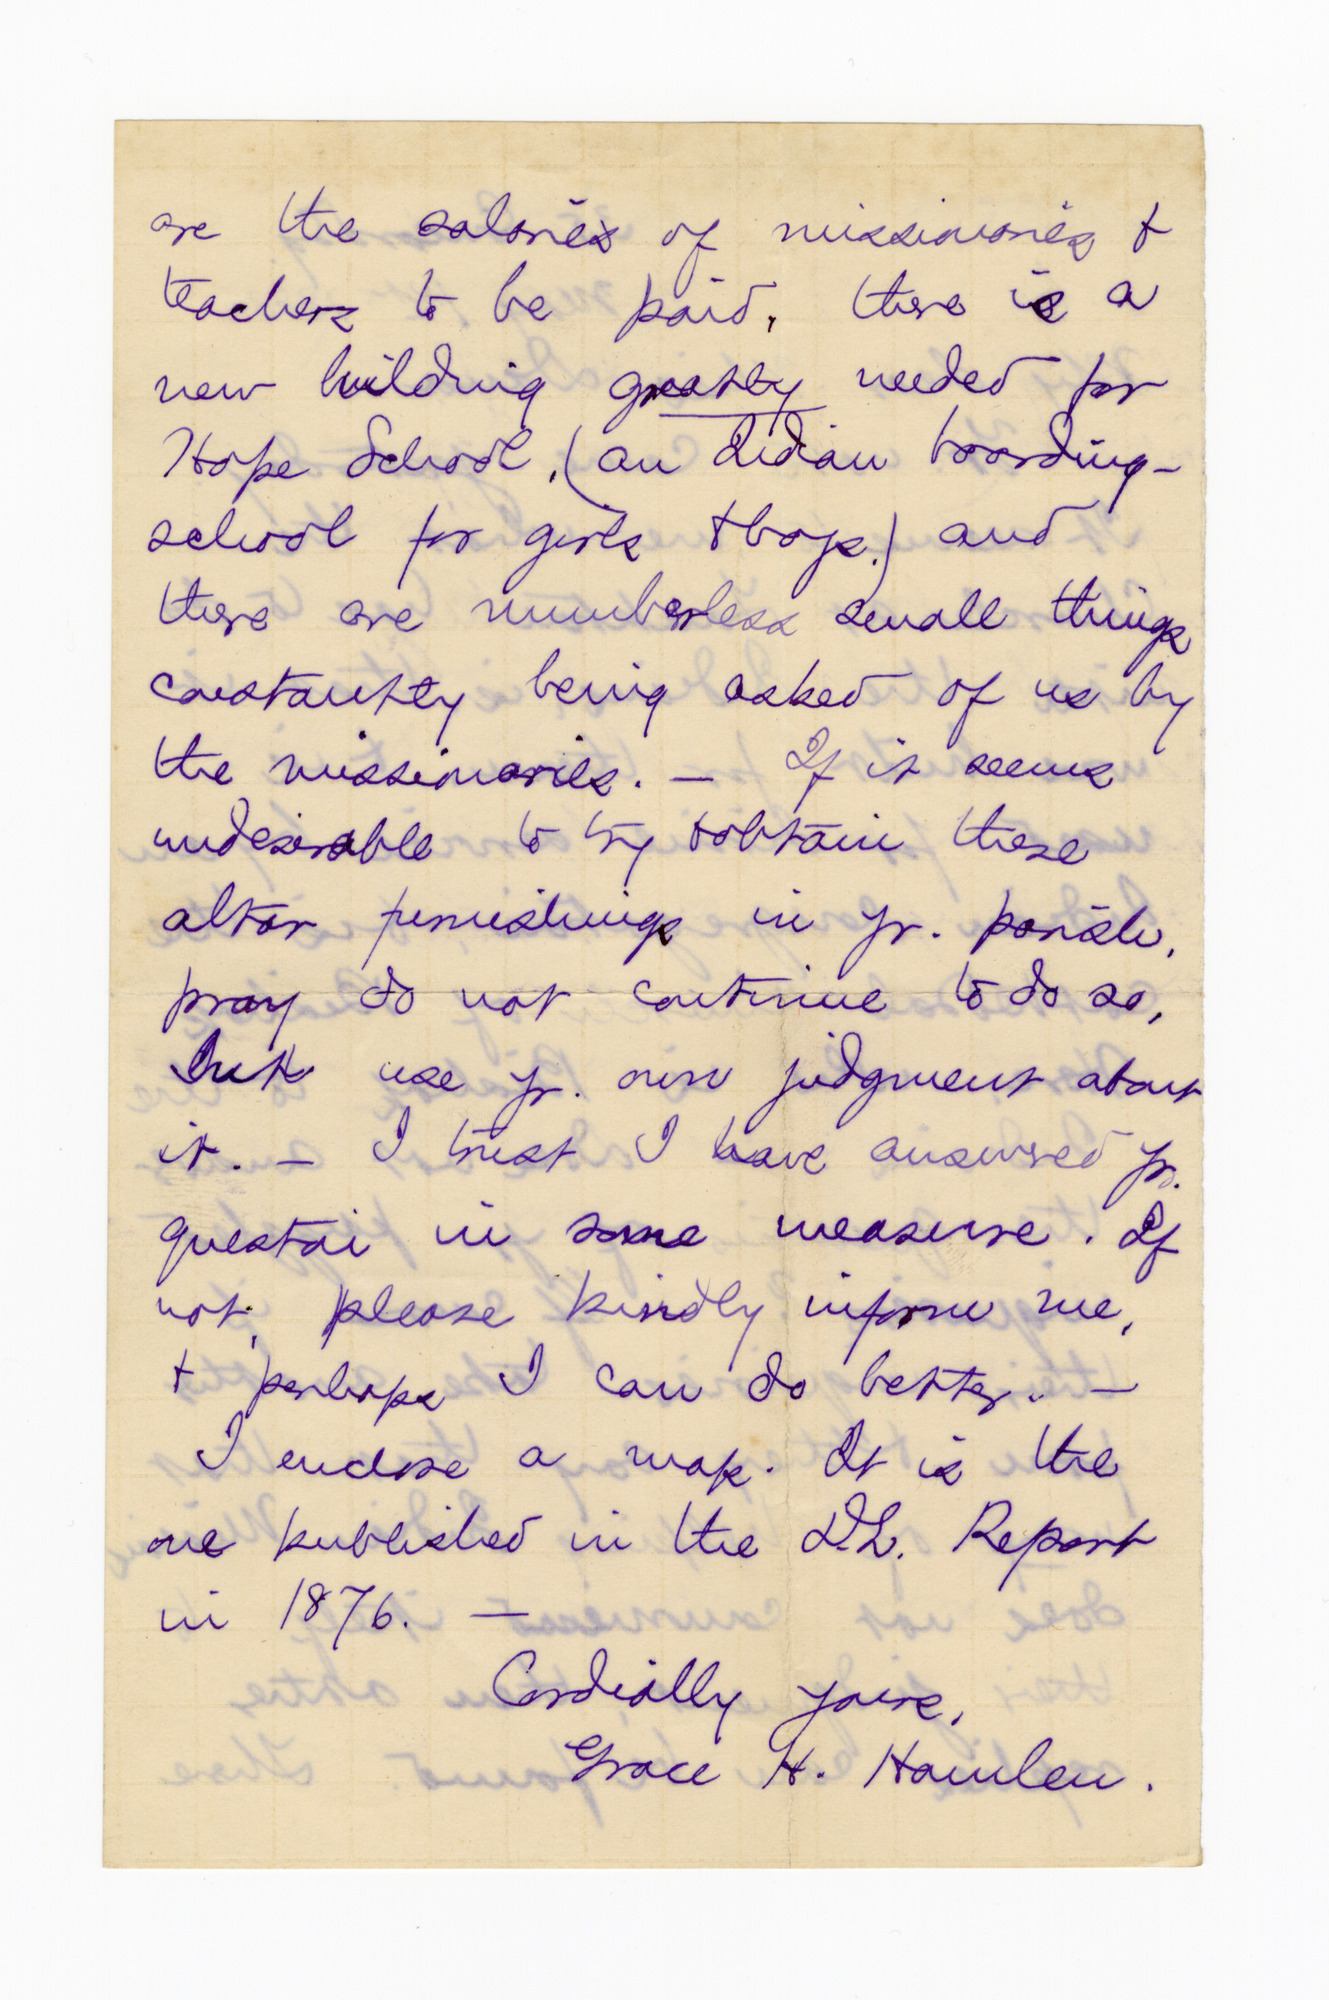 are the salaries of missionaries &
teachers to be paid, there is a
new building greatly needed for
Hope School, (an Indian boarding-
school for girls & boys.) and
there are numberless small things
constantly being asked of us by
the missionaries. — If it seems
undesirable to try to obtain these
altar furnishings in yr. parish,
pray do not continue to do so,
but use yr. own judgment about
it. — I trust I have answered yr.
question in some measure. If
not, please kindly inform me,
& perhaps I can do better. —
I enclose a map. It is the
one published in the D.L. Report
in 1876. —
Cordially yours,
Grace H. Hamlen.